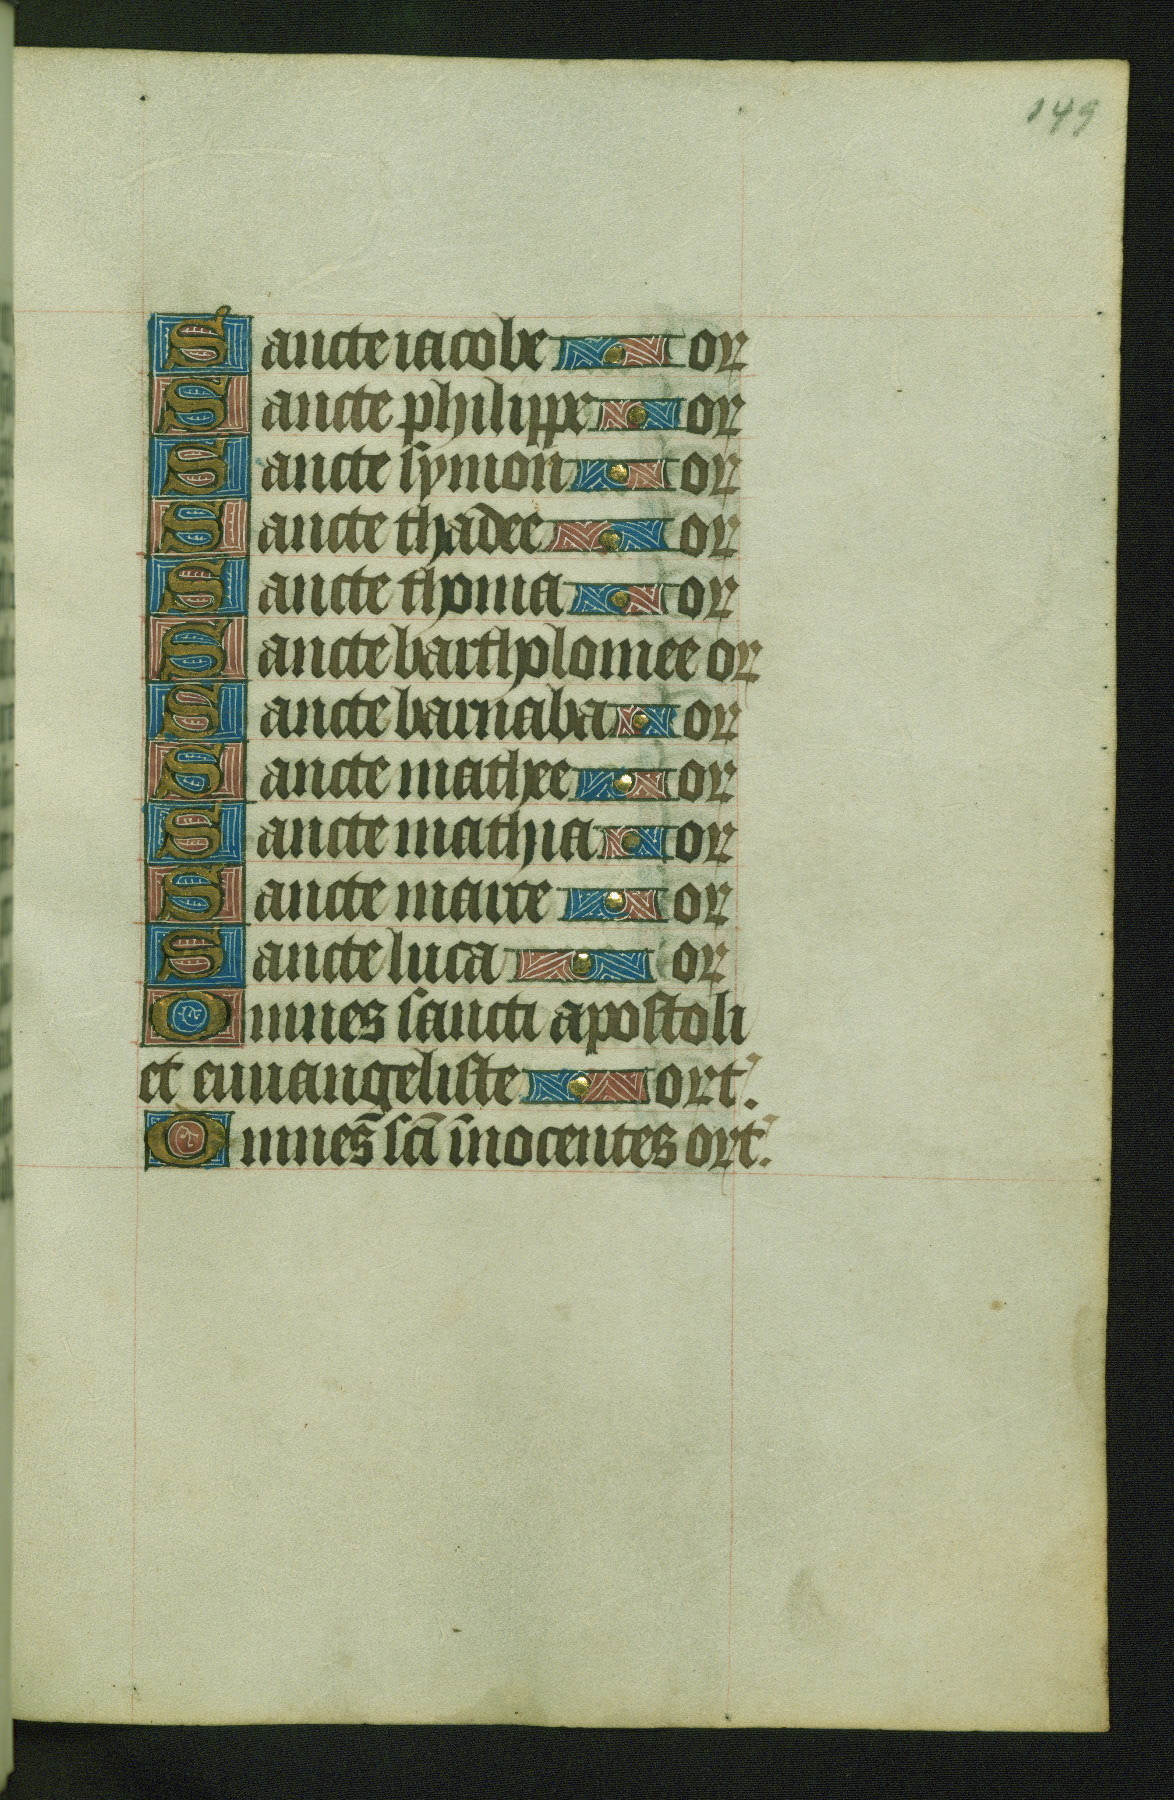 149
Sancte iacobe or
Sancte philippe or
Sancte symon or
Sancte thadee or
Sancte thoma or
Sancte bartholomee or
Sancte barnaba or
Sancte mathee or
Sancte mathia or
Sancte marce or
Sancte luca or
Omnes sancti apostoli
et euuangeliste ort.
Omnes sc̄i īnocentes ort.